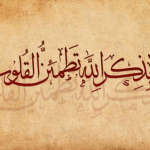 بذكر الله تطمئن القلوب